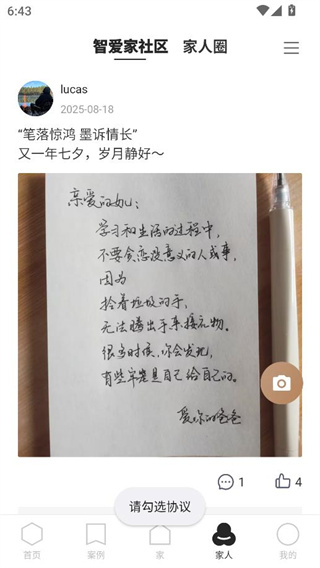 6:43
智爱家社区 家人圈
lucas
2025-08-18
“笔落惊鸿 墨诉情长”
又一年七夕，岁月静好～
亲爱的妮：
学习和生活的过程中，
不要贪恋没意义的人或事，
因为
拾着垃圾的手，
无法腾出手来接礼物。
很多时候，你会发现，
有些牢是自己给自己的。
爱你的爸爸
1
4
请勾选协议
首页
案例
家
家人
我的